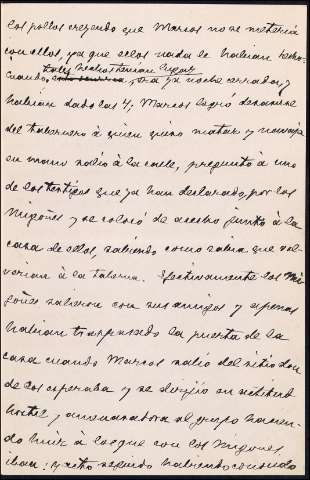 los pollos creyendo que Marcos no se meteria
con ellos, ya que ellos nada le habian hecho.
tales hechos tenian lugar
Cuando, era ya noche cerrada y
habian dado las 4; Marcos logró desasirse
del tabernero à quien quiso matar y navaja
en mano salió à la calle, preguntó à uno
de los testigos que ya han declarado, por los
Migoñes y se colocó de acecho junto à la
casa de ellos, sabiendo como sabia que vol-
verian à la taberna. Efectivamente los Mi
goñes salieron con sus amigos y apenas
habian traspasado la puerta de la
casa cuando Marcos salió del sitio don
de los esperaba y se dirigió en actitud
hostil y amenazadora al grupo hacien-
do huir à los que con los Migoñes
iban; y acto seguido habiendo conocido